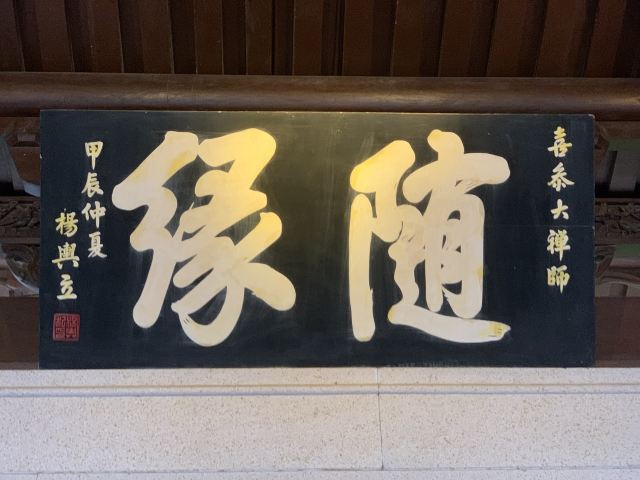 喜叅大禅師
随缘
甲辰仲夏
楊輿立